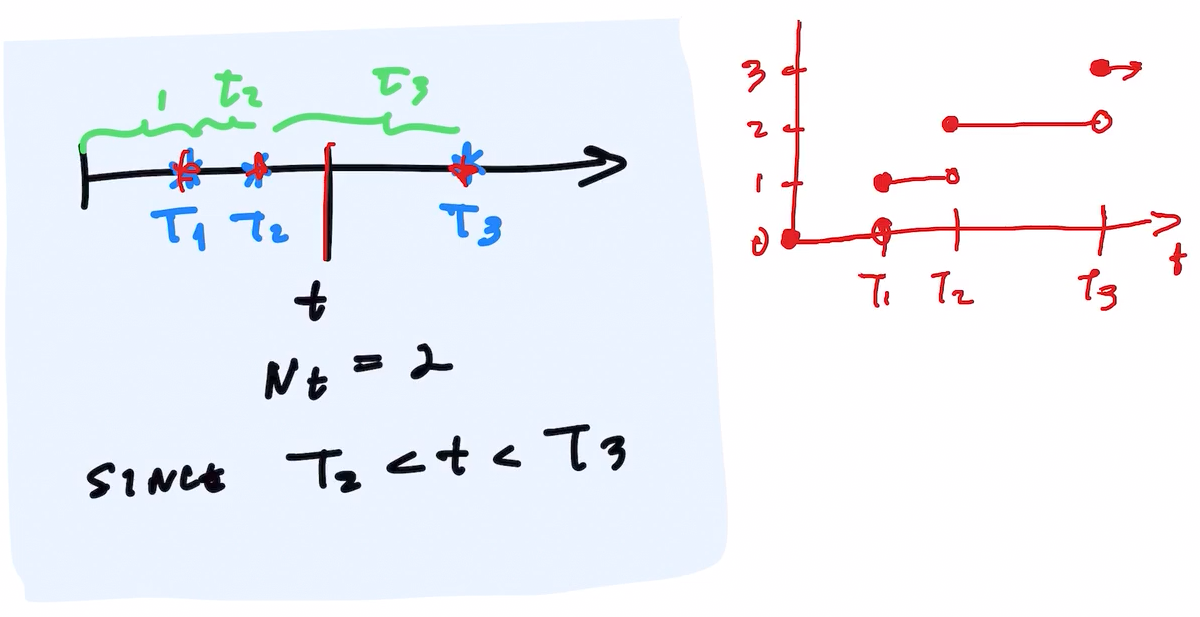 1 τ2 τ3
T1 T2 T3
t
Nt = 2
SINCE T2 < t < T3
3
2
1
0
T1 T2 T3 t